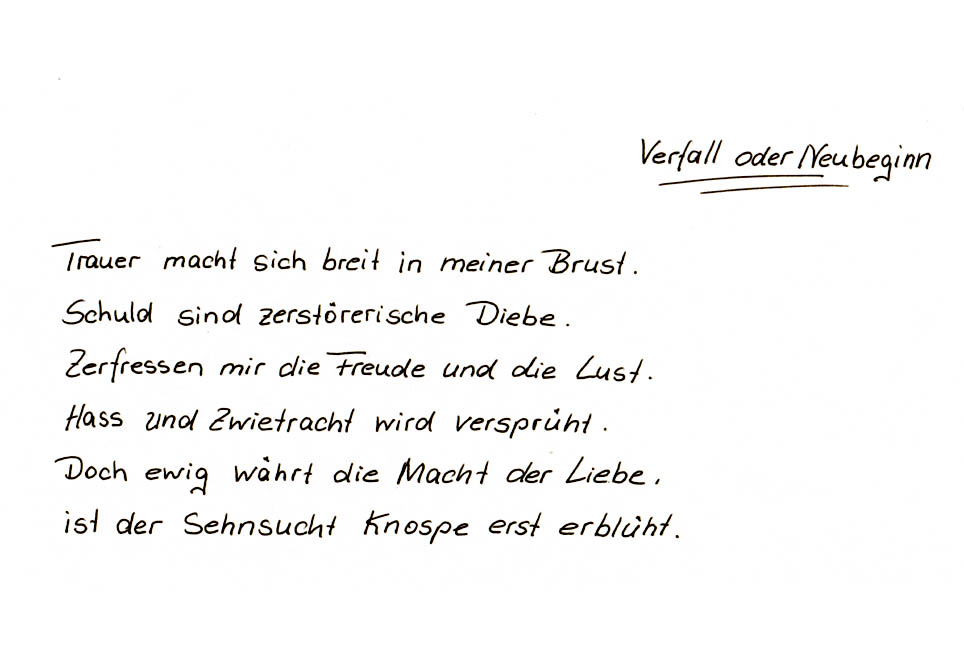 Verfall oder Neubeginn
Trauer macht sich breit in meiner Brust.
Schuld sind zerstörerische Diebe.
Zerfressen mir die Freude und die Lust.
Hass und Zwietracht wird versprüht.
Doch ewig währt die Macht der Liebe,
ist der Sehnsucht Knospe erst erblüht.